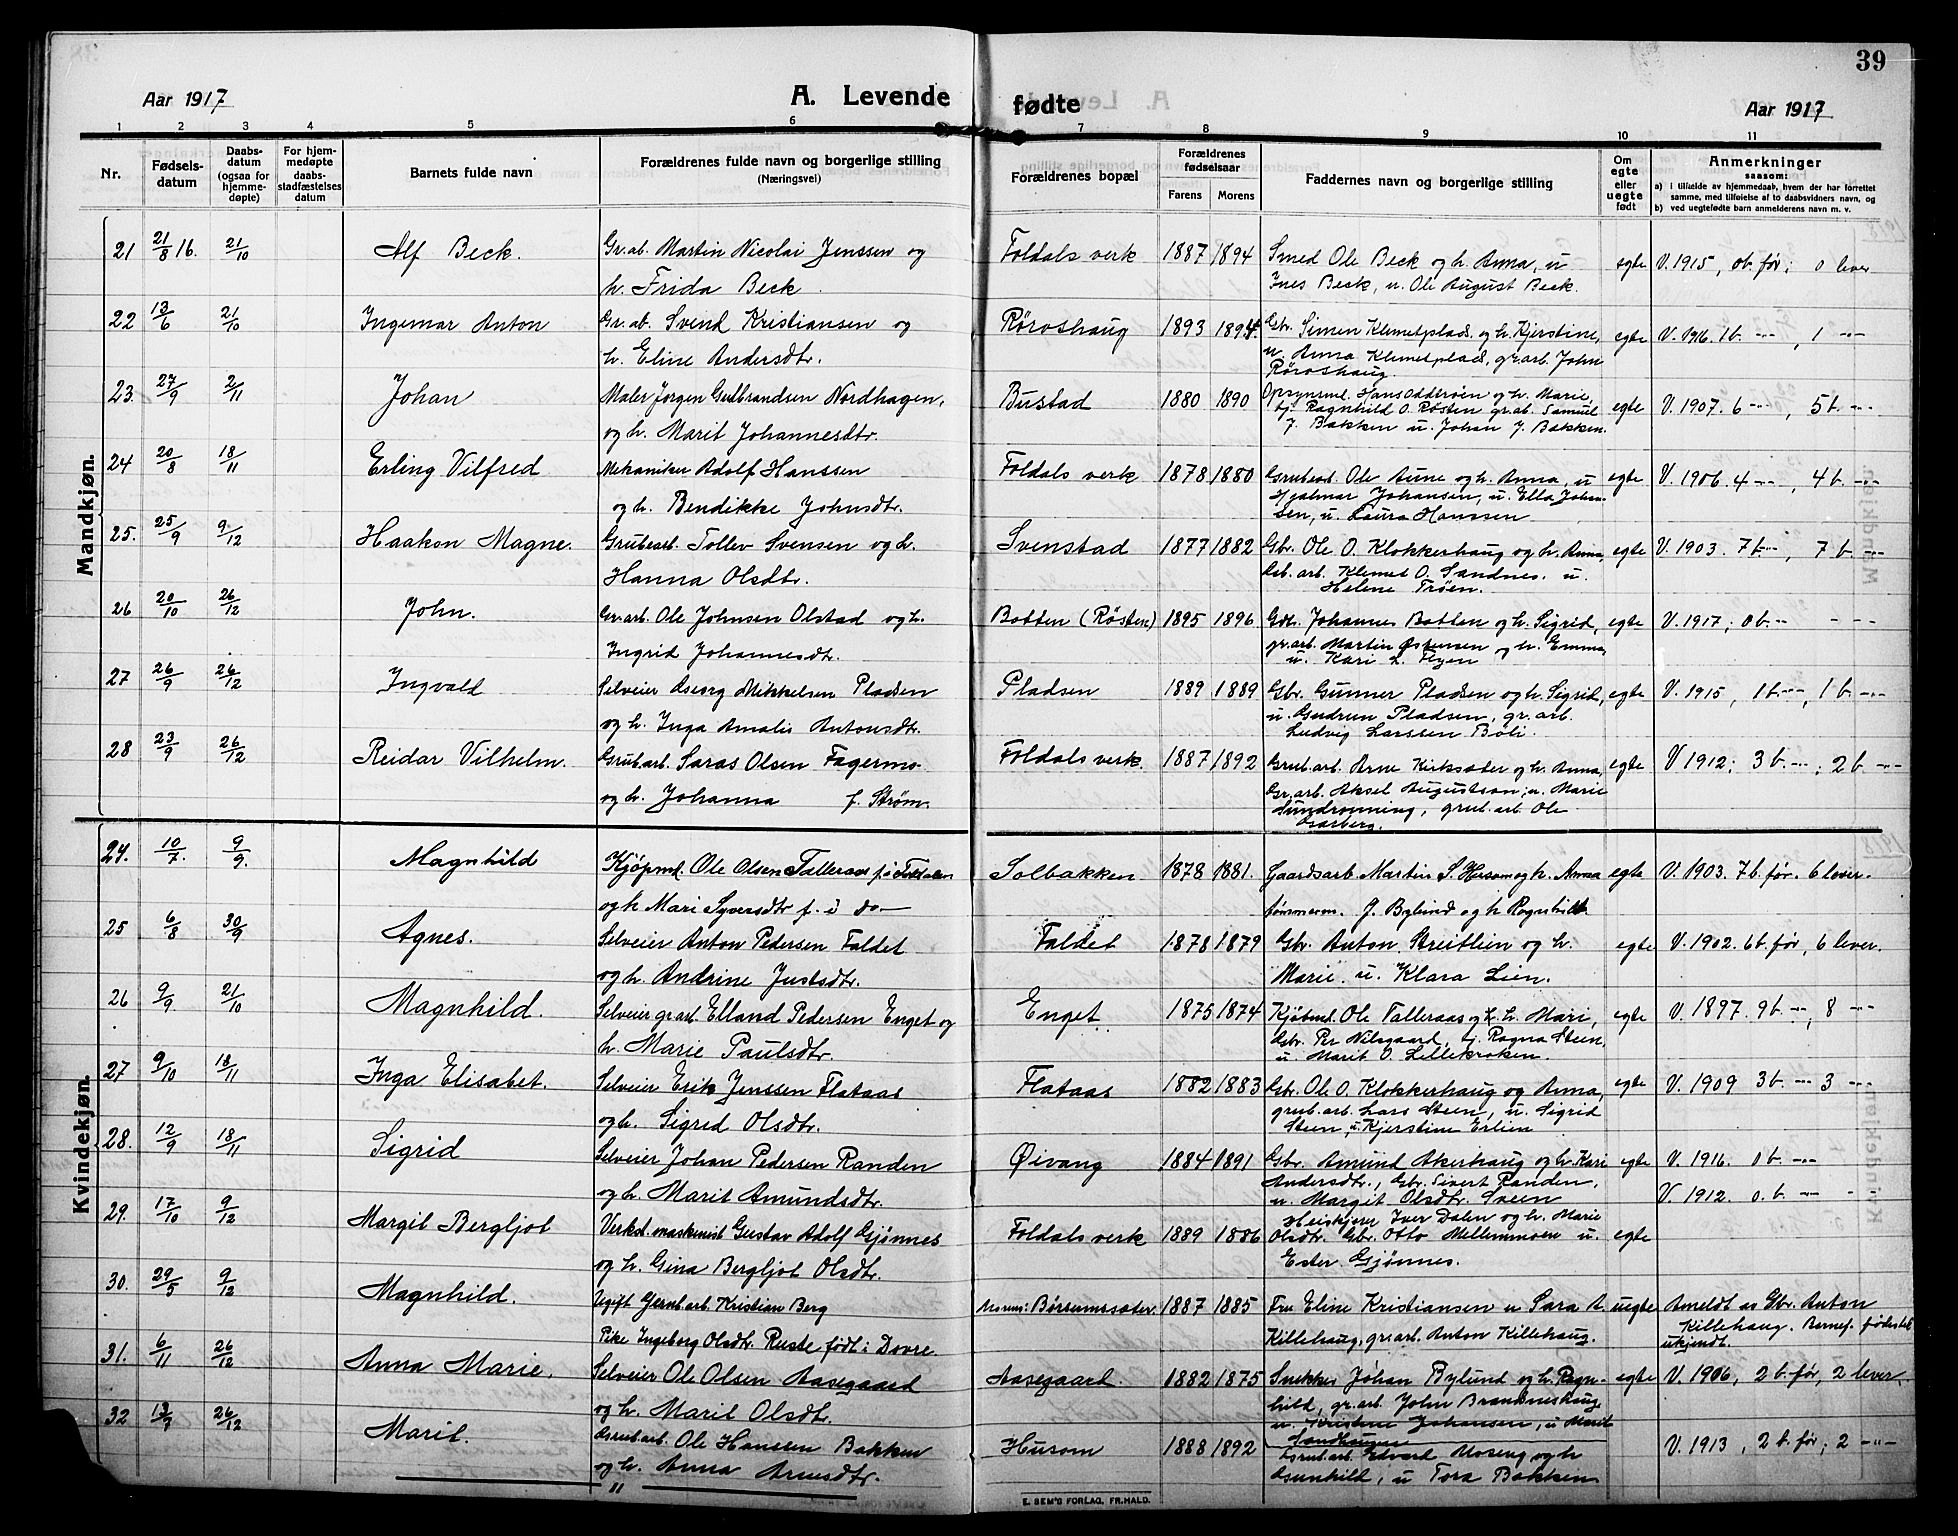 39
Aar 1917
A. Levende
fødte
Aar 1917
1 2 3 4 5 6 7 8 9 10 11
Nr.
Fødsels-
datum
Daabs-
datum
(ogsaa for
hjemme-
døpte)
For hjem-
medøpte
daabs-
stadfæstelses
datum
Barnets fulde navn
Forældrenes fulde navn og borgerlige stilling
(Næringsvei)
Forældrenes bopæl
Forældrenes
fødselsaar
Farens Morens
Faddernes navn og borgerlige stilling
Om
egte
eller
uegte
født
Anmerkninger
saasom:
a) i tilfælde av hjemmedaab, hvem der har forrettet
samme, med tilføielse af to daabsvidners navn, og
b) ved uegtefødte barn anmelderens navn m. v.
Mandkjøn.
21 21/8 16. 21/10 Alf Beck. Gr.ab. Martin Nicolai Jenssen og Foldals verk 1887 1894 Smed Ole Beck og h. Anna, u egte V. 1915, ob. før; 0 lever
h. Frida Beck. Ines Beck, u. Ole August Beck.
22 13/6 21/10 Ingemar Anton Gr.ab. Svend Kristiansen og Røroshaug 1893 1894. Gbr. Simen Klemetplads. og h. Kjerstine, egte V. 1916. 1 b. -"-, 1 -"-
h. Eline Andersdtr. u. Anna Klemetplads, gr.arb. John
Røroshaug.
23. 27/9 2/11 Johan Maler Jørgen Gulbrandsen Nordhagen, Bustad 1880 1890 Opsynsml. Hans Oddtrøen og h. Marie, egte V. 1907. 6 -"-, 5 b. -"-
og h. Marit Johannesdtr. tj. Ragnhild O. Røsten gr.ab. Samuel
J. Bakken u. Johan J. Bakken.
24 20/8 18/11 Erling Vilfred Mekaniker Adolf Hanssen Foldals verk 1878 1880 Grubearb. Ole Aune og h. Anna, u egte V. 1906. 4 -"-, 4 b. -"-
og h. Bendikke Johnsdtr. Hjalmar Johansen, u. Ella Johan-
sen, u. Laura Hanssen
25. 25/9 9/12 Haakon Magne. Grubearb. Tollev Svensen og h. Svenstad 1877 1882 Gbr. Ole O. Klokkerhaug og h. Anna, egte V. 1903. 7 b -"-, 7 b -"-
Hanna Olsdtr. Gb. arb. Klemet O. Sandnes. u.
Helene Trøen.
26 20/10 26/12 John. Gr.arb. Ole Johnsen Olstad og h. Botten (Røsten) 1895 1896 Gdbr. Johannes Botten og h. Sigrid, egte V. 1917; 0 b. -"-
Ingrid Johannesdtr. gr.arb. Martin Østensen og h. Emma,
u. Kari L. Flyen
27 26/9 26/12 Ingvald Selveier Georg Mikkelsen Pladsen Pladsen 1889 1889 Gbr. Gunner Pladsen og h. Sigrid, egte V. 1915, 1 b -"-, 1 b -"-
og h. Inga Amalie Antonsdtr. u. Gudrun Pladsen, gr.arb.
Ludvig Larssen Böli.
28 23/9 26/12 Reidar Vilhelm. Grubarb. Saras Olsen Fagermo Foldals verk. 1887 1892 Grub.arb. Arne Kirksæter og h. Anna, egte V 1912; 3 b. -"-; 2 b -"-
og h. Johanna f. Strøm. Gr.arb. Aksel Augustson; u. Marie
Sundronning, grub.arb. Ole
Kvindekjøn.
24. 10/7. 9/9. Magnhild Kjøpmd. Ole Olsen Talleraas f. i Foldalen Solbakken 1878 1881. Gaardsarb. Martin S. Husom og h. Anna egte V. 1903. 7 b. før. 6 lever.
og h Mari Syversdtr f. i do— tømmerm. J. Bylund og h Ragnhild
25 6/8 30/9 Agnes. Selveier Anton Pedersen Faldet Faldet 1878 1879 Gbr. Anton Streitlien og h. egte V. 1902. 6 b. før, 6 lever.
og h. Andrine Justsdtr. Marie. u. Klara Lien.
26 9/9 21/10 Magnhild. Selveier gr.arb. Elland Pedersen Enget og Enget 1875 1874 Kjøbmd. Ole Talleraas og h. h. Mari, egte V. 1897. 9 b -"-, 8 -"-
h. Marie Paulsdtr. Gbr. Per Nilsgaard, tj. Ragna Steen,
u. Marit O. Lillekroken.
27 9/10 18/11 Inga Elisabet. Selveier Erik Jenssen Flataas Flataas 1882 1883 Gbr. Ole O. Klokkerhaug og Anna, egte V. 1909 3 b. -"- 3 -"-
og h. Sigrid Olsdtr. grub.arb. Lars Steen, u. Sigrid
Steen, u. Kjerstine Erlien
28. 12/9 18/11 Sigrid Selveier Johan Pedersen Randen Øivang 1884 1891 Gbr. Amund Akerhaug og h. Kari egte V. 1916. 0 b. -"-
og h. Marit Amundsdtr. Andersdtr., Gbr. Sivert Randen,
u. Margit Olsdtr. Sveen V. 1912. 0. b -"-
29. 17/10 9/12 Margit Bergljot Verkst. maskinist Gustav Adolf Gjønnes Foldals verk 1889 1886 Heiskjører Iver Dalen og h. Marie egte
og h. Gina Bergljot Olsdtr. Olsdtr. Gbr. Otto Mellemmoen u.
Ester Gjønnes.
30. 29/5 9/12 Magnhild. Ugift Jernb.arb. Kristian Berg Morens: Børsumssæter 1887 1885 Fru Eline Kristiansen u Sara A. uegte Ameldt av Gbr. Anton
Pike Ingeborg Olsdtr. Ruste født i Dovre. Killehaug, gr.arb. Anton Killehaug. Killehaug. Barnef. fødested
ukjendt.
31. 6/11 26/12 Anna Marie. Selveier Ole Olsen Aasegaard Aasegaard. 1882 1875 Snekker Johan Bylund og h. Ragn- egte V. 1906, 2 b. før, 2 lever.
og h. Marit Olsdtr. hild, gr.arb. John Brandneshaug
u. Kristine Johansen, u Marit
Sandhaugen
32 13/9 26/12 Marit. Grub.arb. Ole Hanssen Bakken Husom 1888 1892 Grub.arb. Edvard Moseng og h V. 1913, 2 b. før; 2 -"-
og h. Anna Arnesdtr. Gunhild, u Tora Bakken
"
E. SEM'S FORLAG, FR.HALD.